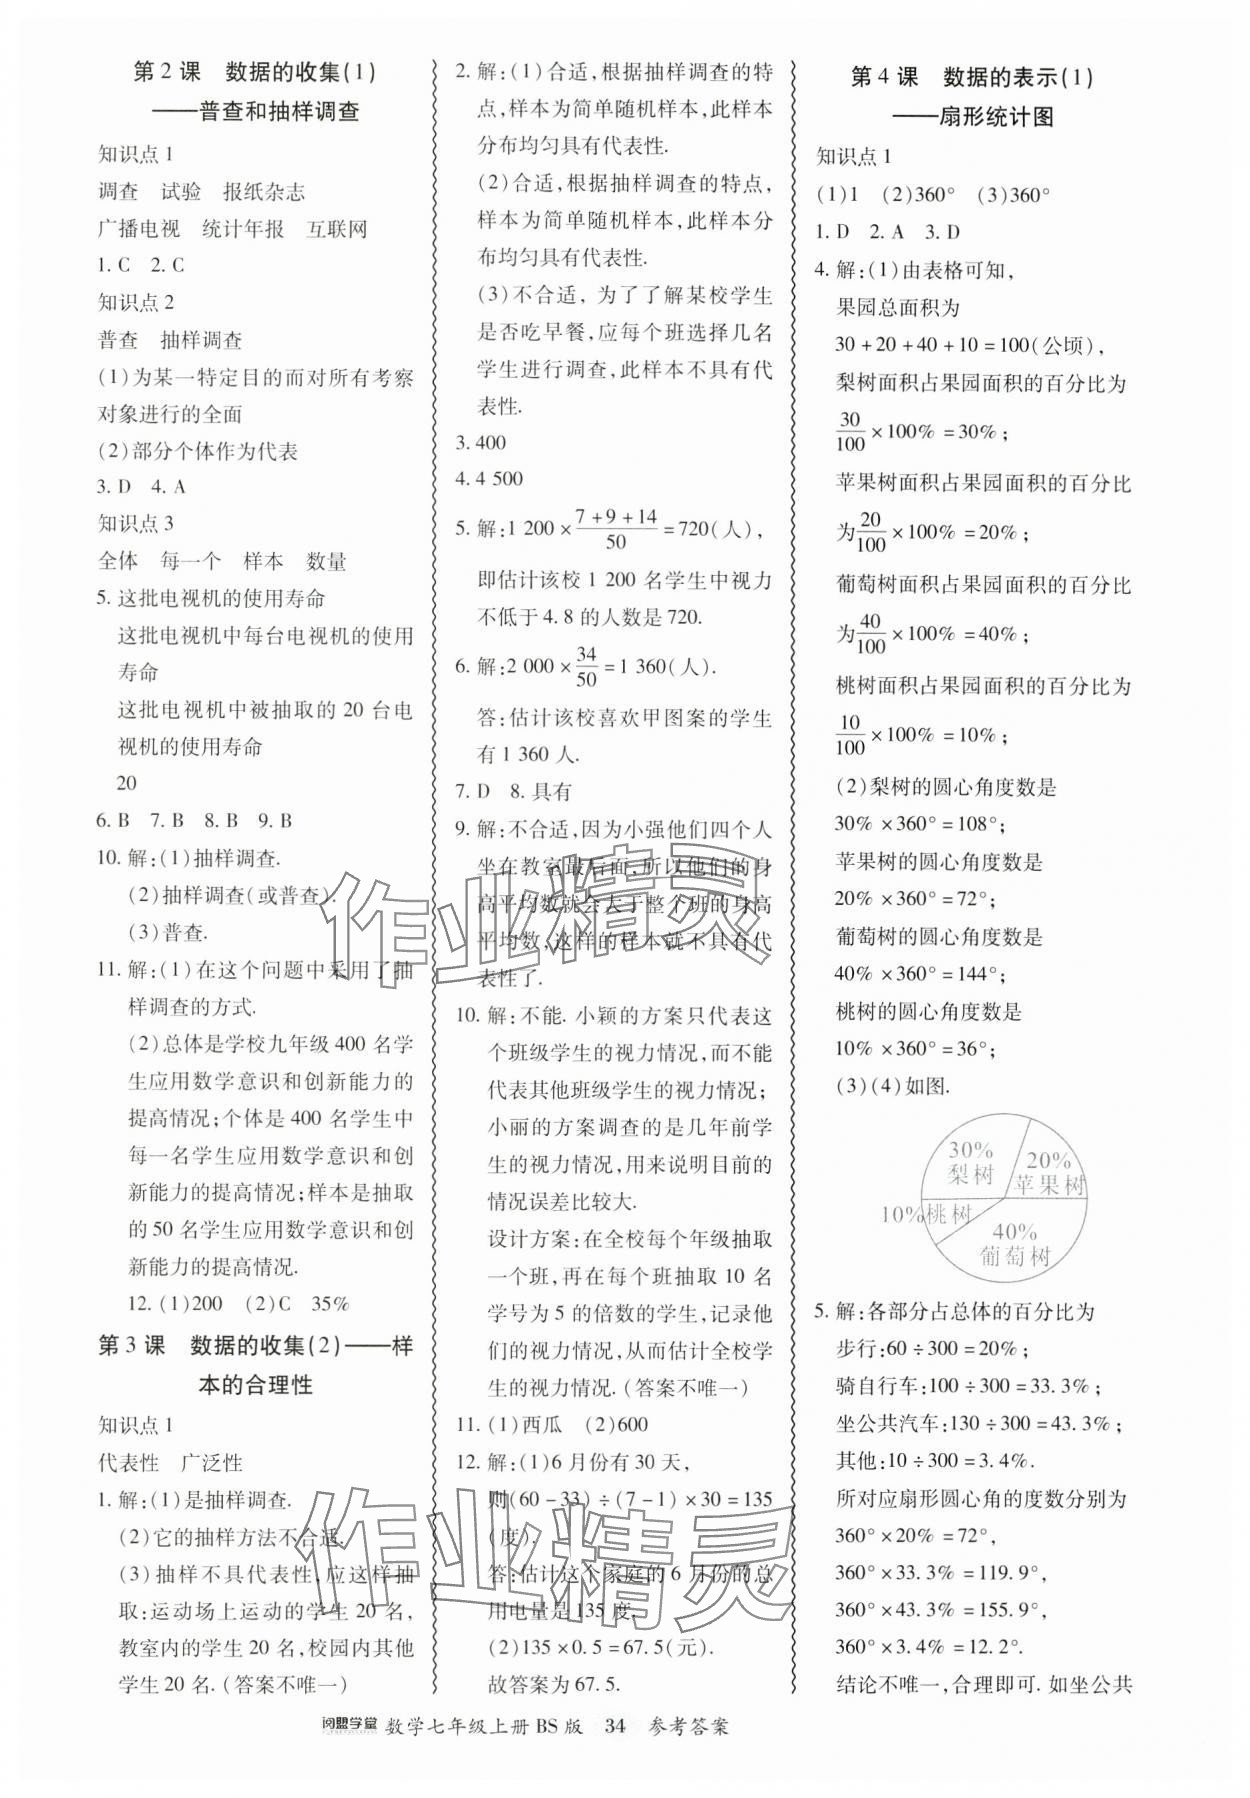 第2课　数据的收集(1)
——普查和抽样调查
知识点1
调查　试验　报纸杂志
广播电视　统计年报　互联网
1. C　2. C
知识点2
普查　抽样调查
(1)为某一特定目的而对所有考察
对象进行的全面
(2)部分个体作为代表
3. D　4. A
知识点3
全体　每一个　样本　数量
5. 这批电视机的使用寿命
这批电视机中每台电视机的使用
寿命
这批电视机中被抽取的20台电
视机的使用寿命
20
6. B　7. B　8. B　9. B
10. 解:(1)抽样调查.
(2)抽样调查(或普查).
(3)普查.
11. 解:(1)在这个问题中采用了抽
样调查的方式.
(2)总体是学校九年级400名学
生应用数学意识和创新能力的
提高情况;个体是400名学生中
每一名学生应用数学意识和创
新能力的提高情况;样本是抽取
的50名学生应用数学意识和创
新能力的提高情况.
12. (1)200　(2)C　35%
第3课　数据的收集(2)——样
本的合理性
知识点1
代表性　广泛性
1. 解:(1)是抽样调查.
(2)它的抽样方法不合适.
(3)抽样不具代表性,应这样抽
取:运动场上运动的学生20名,
教室内的学生20名,校园内其他
学生20名.(答案不唯一)
2. 解:(1)合适,根据抽样调查的特
点,样本为简单随机样本,此样本
分布均匀具有代表性.
(2)合适,根据抽样调查的特点,
样本为简单随机样本,此样本分
布均匀具有代表性.
(3)不合适,为了了解某校学生
是否吃早餐,应每个班选择几名
学生进行调查,此样本不具有代
表性.
3. 400
4. 4 500
5. 解:1 200×(7+9+14)/50=720(人),
即估计该校1 200名学生中视力
不低于4.8的人数是720.
6. 解:2 000×34/50=1 360(人).
答:估计该校喜欢甲图案的学生
有1 360人.
7. D　8. 具有
9. 解:不合适,因为小强他们四个人
坐在教室最后面,所以他们的身
高平均数就会大于整个班的身高
平均数,这样的样本就不具有代
表性了.
10. 解:不能. 小颖的方案只代表这
个班级学生的视力情况,而不能
代表其他班级学生的视力情况;
小丽的方案调查的是几年前学
生的视力情况,用来说明目前的
情况误差比较大.
设计方案:在全校每个年级抽取
一个班,再在每个班抽取10名
学号为5的倍数的学生,记录他
们的视力情况,从而估计全校学
生的视力情况.(答案不唯一)
11. (1)西瓜　(2)600
12. 解:(1)6月份有30天,
则(60-33)÷(7-1)×30=135
(度).
答:估计这个家庭的6月份的总
用电量是135度.
(2)135×0.5=67.5(元).
故答案为67.5.
第4课　数据的表示(1)
——扇形统计图
知识点1
(1)1　(2)360°　(3)360°
1. D　2. A　3. D
4. 解:(1)由表格可知,
果园总面积为
30+20+40+10=100(公顷),
梨树面积占果园面积的百分比为
30/100×100%=30%;
苹果树面积占果园面积的百分比
为20/100×100%=20%;
葡萄树面积占果园面积的百分比
为40/100×100%=40%;
桃树面积占果园面积的百分比为
10/100×100%=10%;
(2)梨树的圆心角度数是
30%×360°=108°;
苹果树的圆心角度数是
20%×360°=72°;
葡萄树的圆心角度数是
40%×360°=144°;
桃树的圆心角度数是
10%×360°=36°;
(3)(4)如图.
30%
梨树
20%
苹果树
10%桃树
40%
葡萄树
5. 解:各部分占总体的百分比为
步行:60÷300=20%;
骑自行车:100÷300=33.3%;
坐公共汽车:130÷300=43.3%;
其他:10÷300=3.4%.
所对应扇形圆心角的度数分别为
360°×20%=72°,
360°×33.3%=119.9°,
360°×43.3%=155.9°,
360°×3.4%=12.2°.
结论不唯一,合理即可. 如坐公共
阅盟学堂　数学七年级上册BS版　34　参考答案
作业精灵
作业精灵